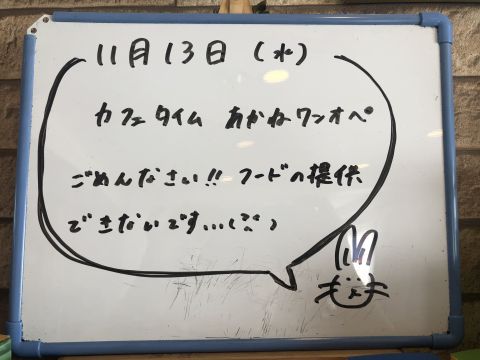 11月13日(水)
カフェタイム あかねワンオペ
ごめんなさい!! フードの提供
できないです...(>_<)